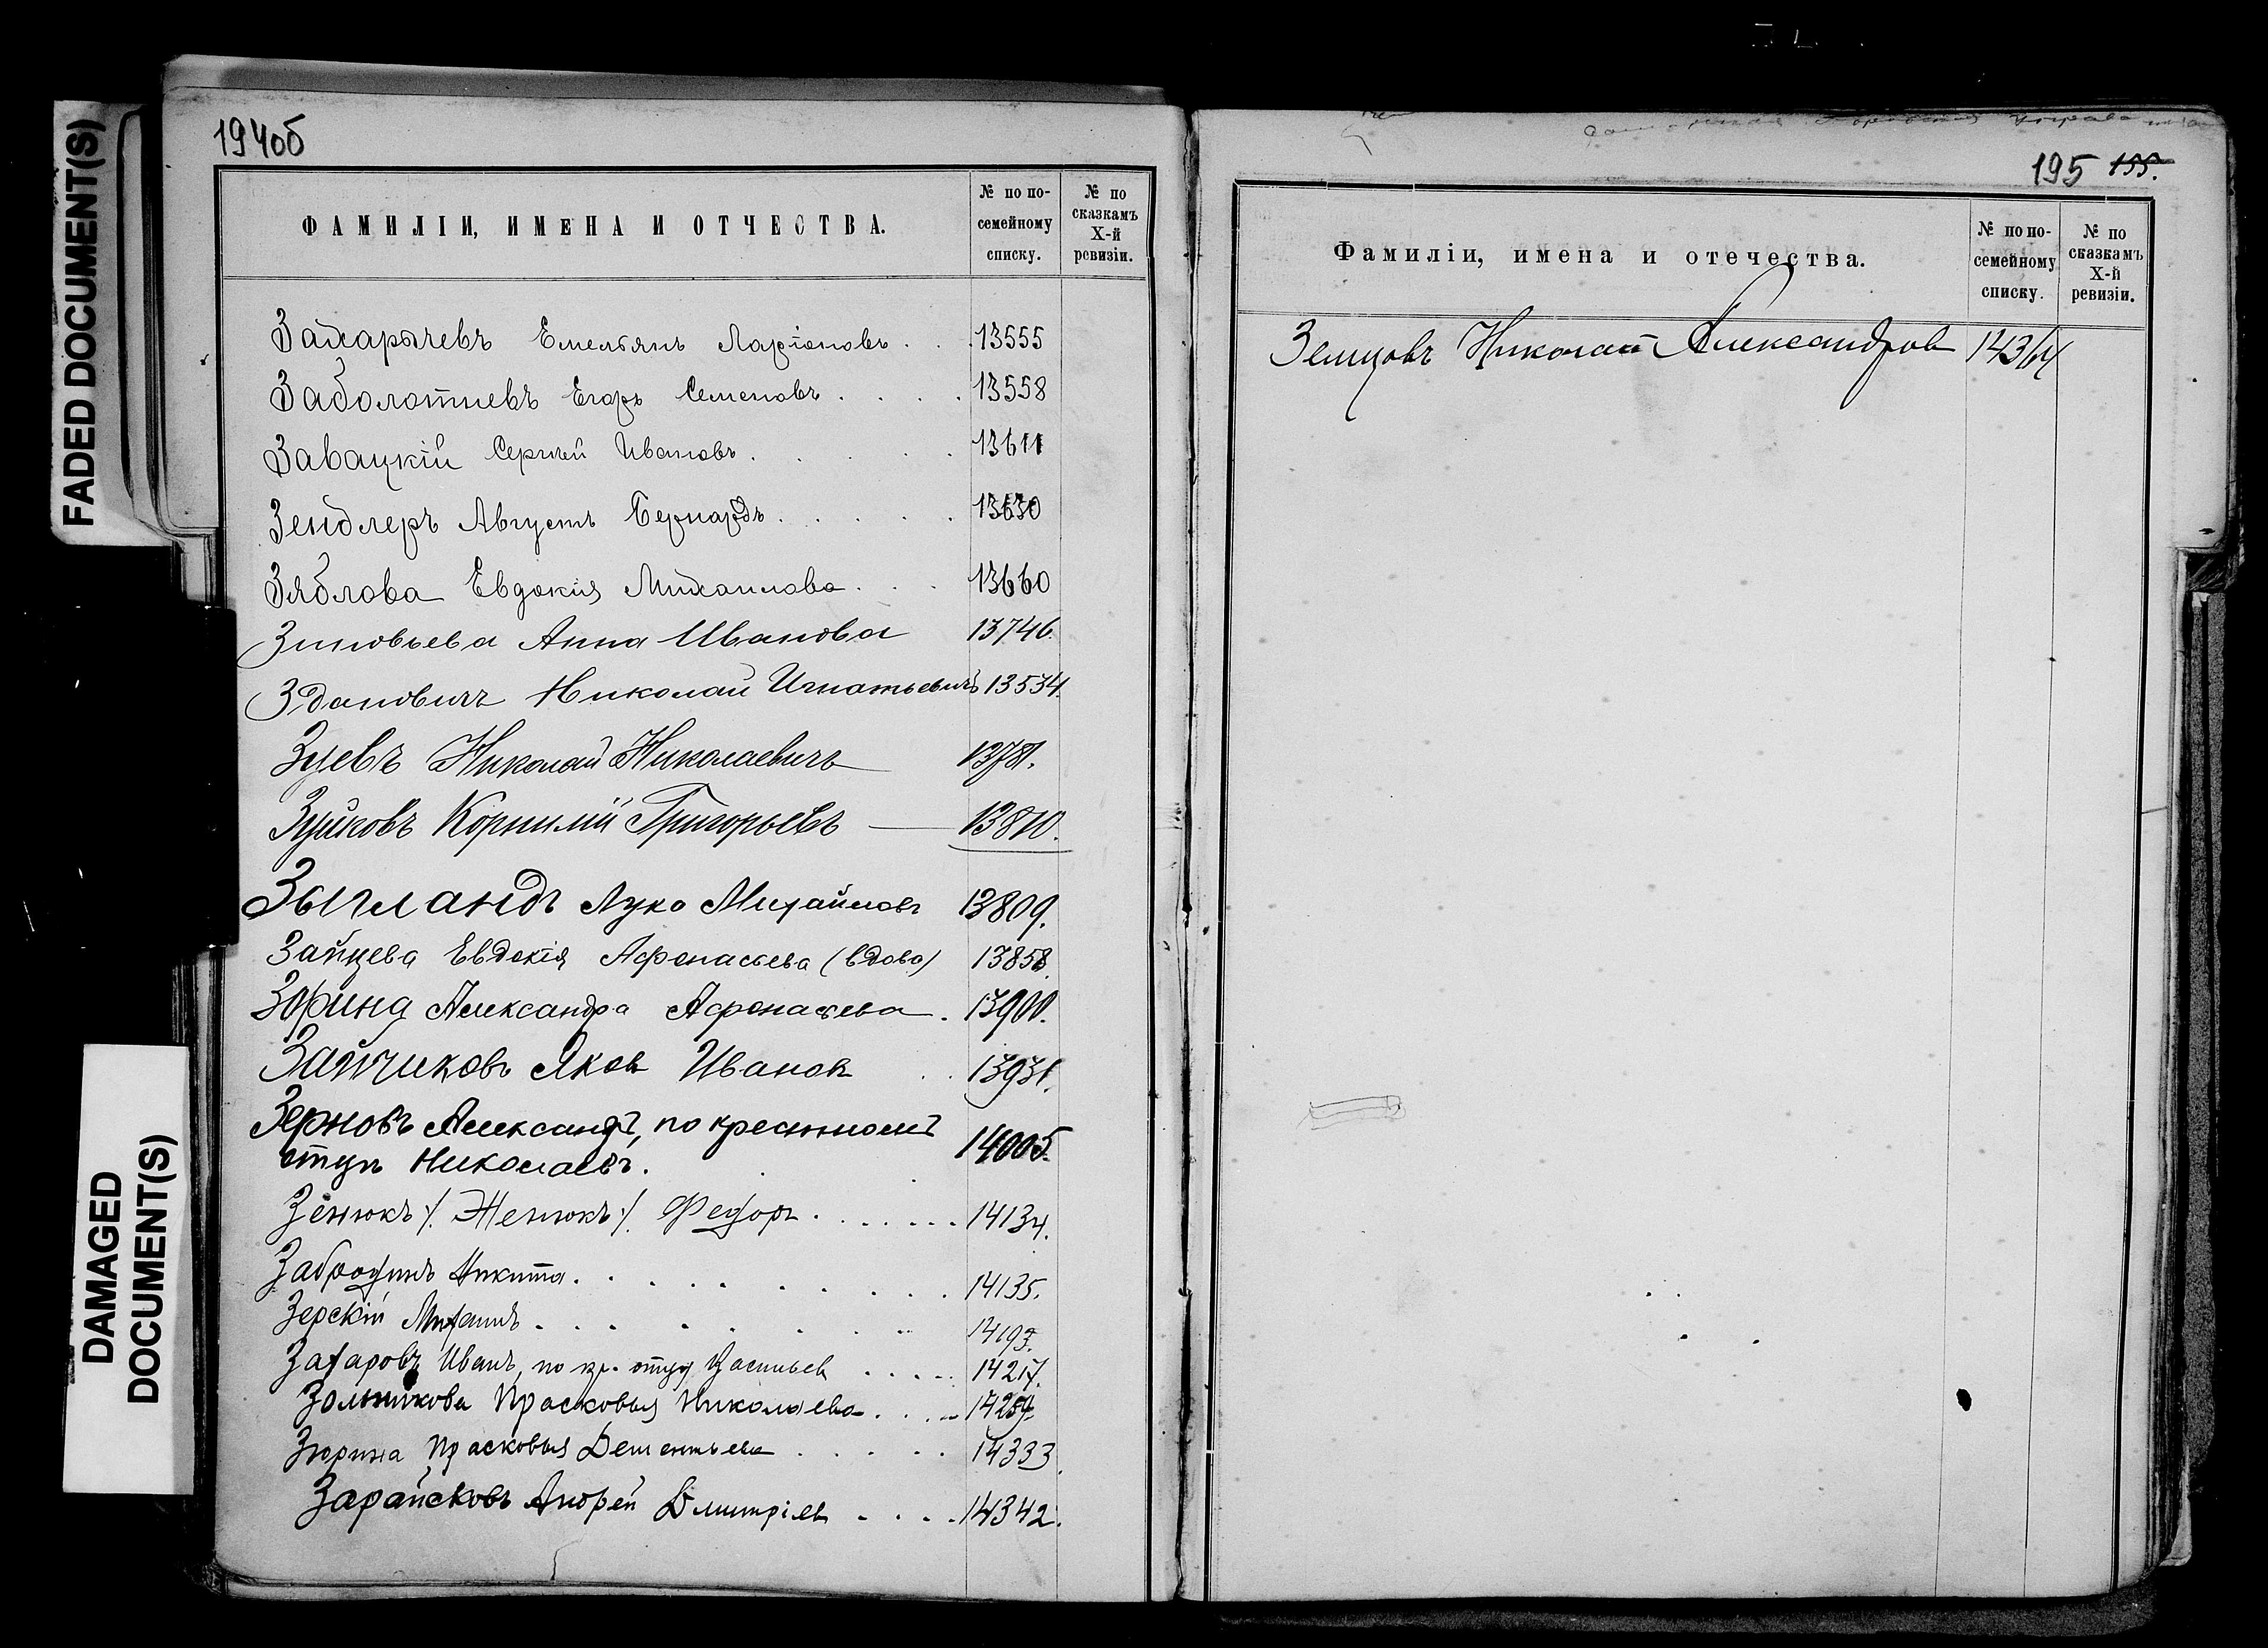 FADED DOCUMENT(S)
DAMAGED
DOCUMENT(S)
194об
ФАМИЛІИ, ИМЕНА И ОТЧЕСТВА.
№ по по-
семейному
списку.
№ по
сказкамъ
X-й
ревизіи.
Захарычевъ Емельянъ Ларіоновъ . . . 13555
Заболотневъ Егоръ Семеновъ . . . . 13558
Завацкій Сергѣй Ивановъ . . . . . 13611
Зендлеръ Августъ Бернардъ . . . . . 13630
Зяблова Евдокія Михаилова . . . 13660
Зиновьева Анна Иванова 13746.
Здановичъ Николай Игнатьевичъ 13534.
Зуевъ Николай Николаевичъ 13781.
Зуйковъ Корнилій Григорьевъ — 13810.
Зыгландъ Лука Михайловъ 13809.
Зайцева Евдокія Афонасьева (вдова) 13858.
Зорина Александра Афонасьева . 13900.
Зайчиковъ Яковъ Ивановъ . . 13931.
Зерновъ Александръ, по крестному
отцу Николаевъ. 14005.
Зенюкъ /. Женюкъ ./ Федоръ . . . . . . . 14134.
Забродинъ Никита . . . . . . . . . 14135.
Зерскій Михаилъ . . . . . . . . 14193.
Захаровъ Иванъ, по кр. отцу Васильев . . . . . 14217.
Зольникова Прасковья Николаева . . . . 14254.
Зюрина Прасковья Дементьева . . . . . 14333.
Зарайсковъ Андрей Дмитріев . . . . 14342.
195 155.
Фамиліи, имена и отечества.
№ по по-
семейному
списку.
№ по
сказкамъ
X-й
ревизіи.
Земцовъ Николай Александров 14364